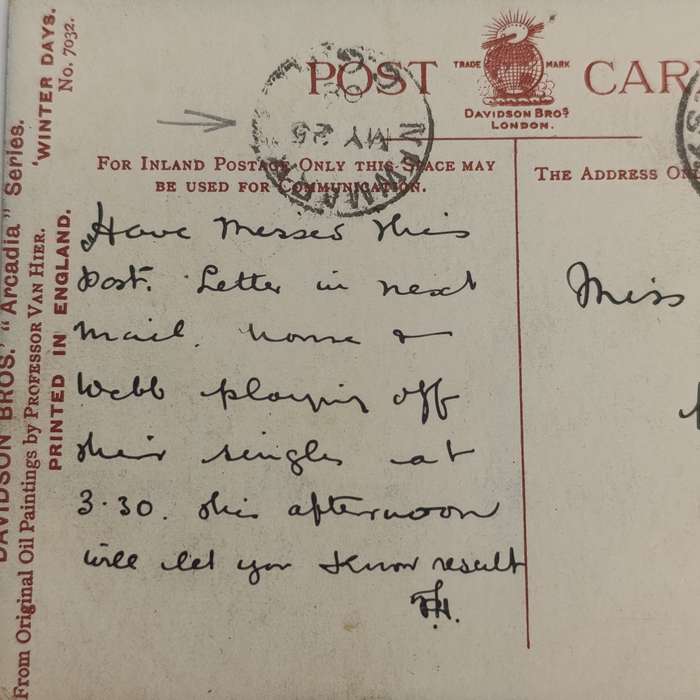 POST CAR
TRADE MARK
DAVIDSON BROS.
LONDON.
MY 25
NEWMAR
FOR INLAND POSTAGE ONLY THIS SPACE MAY
BE USED FOR COMMUNICATION.
THE ADDRESS ON
Have messed this
Post. Letter in next
mail. &
Webb playing off
their singles at
3.30. this afternoon
will let you know result
F.H.
Miss
DAVIDSON BROS.' "Arcadia" Series.
From Original Oil Paintings by PROFESSOR VAN HIER.
PRINTED IN ENGLAND.
'WINTER DAYS.
No. 7032.